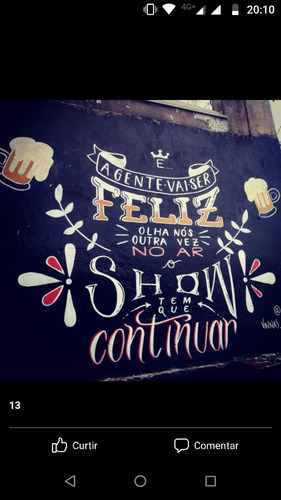 4G+
20:10
E...
A GENTE VAI SER
FELIZ
OLHA NÓS
OUTRA VEZ
NO AR
O
SHOW
TEM
QUE
continuar
@
13
Curtir
Comentar